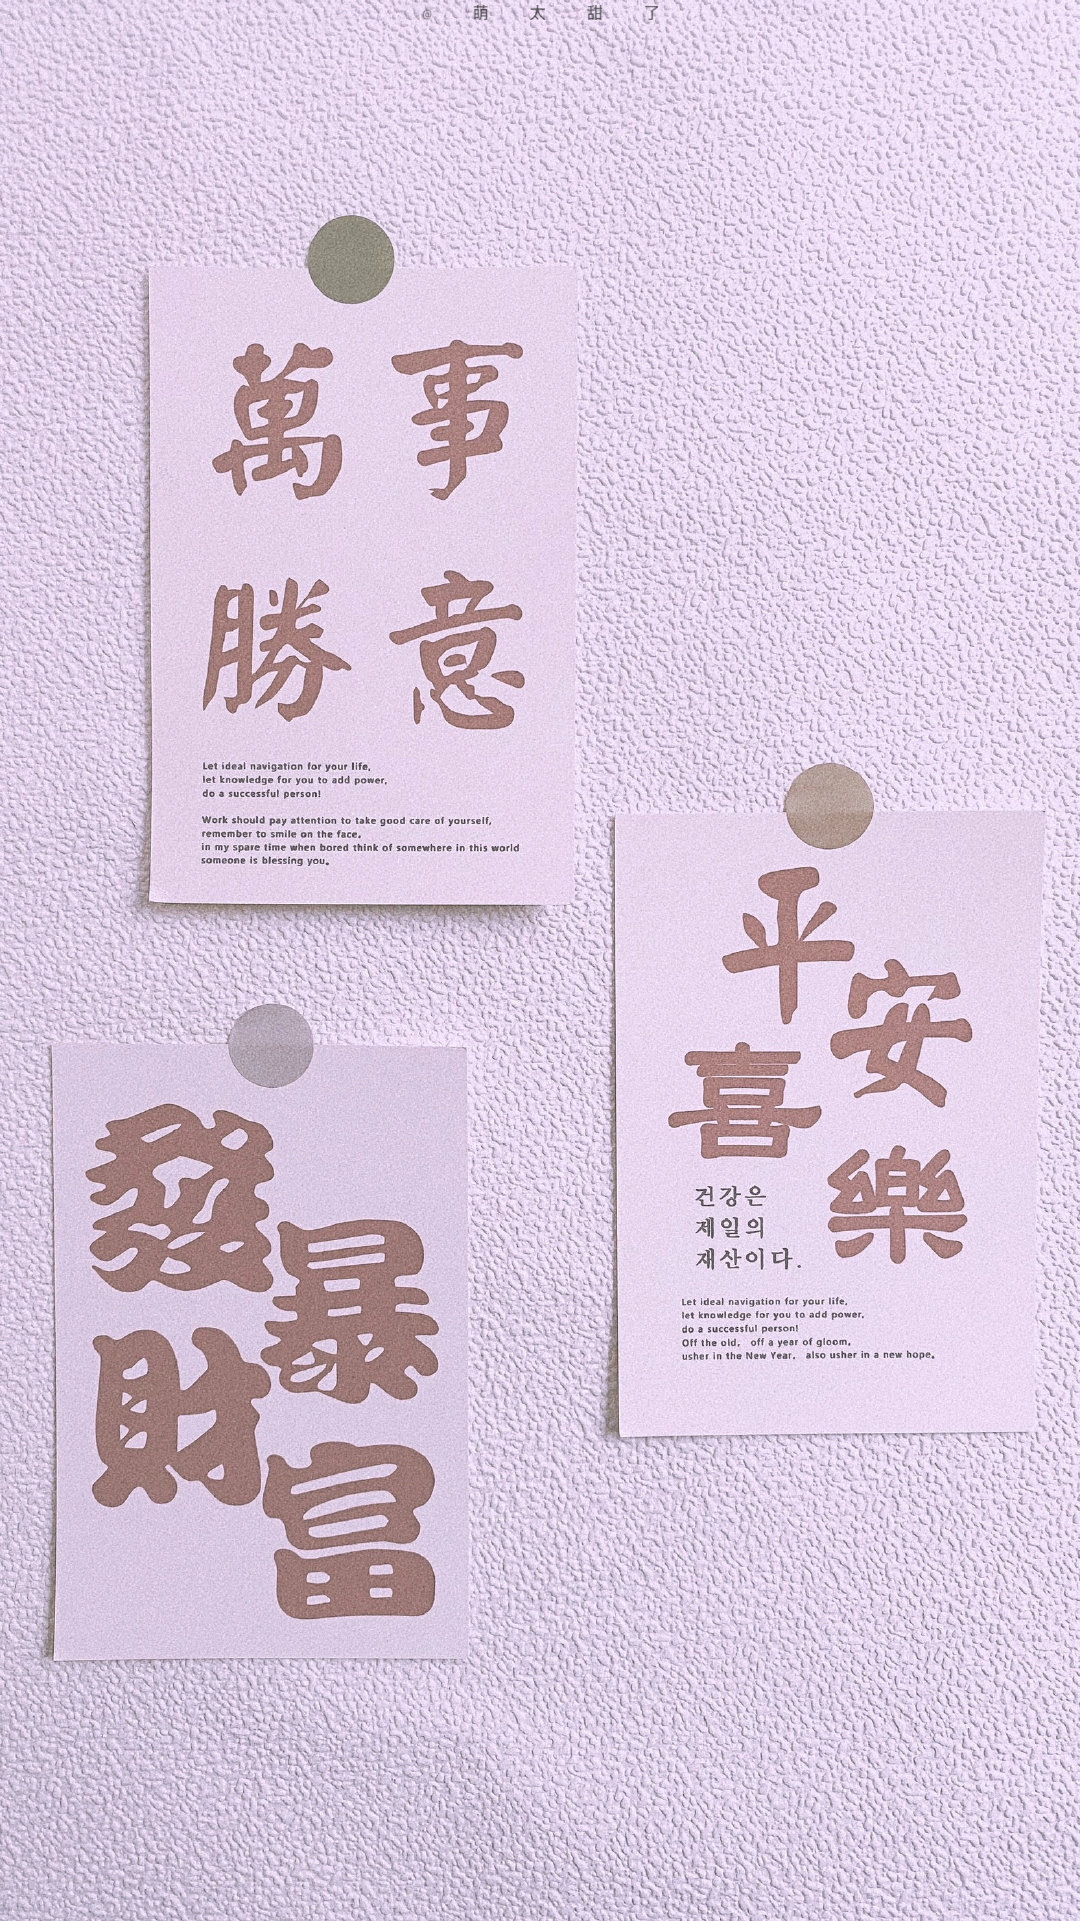 @萌太甜了
萬事
勝意
Let ideal navigation for your life,
let knowledge for you to add power,
do a successful person!
Work should pay attention to take good care of yourself,
remember to smile on the face.
in my spare time when bored think of somewhere in this world
someone is blessing you.
平安
喜樂
건강은
제일의
재산이다.
Let ideal navigation for your life,
let knowledge for you to add power,
do a successful person!
Off the old, off a year of gloom,
usher in the New Year, also usher in a new hope.
發暴
財富